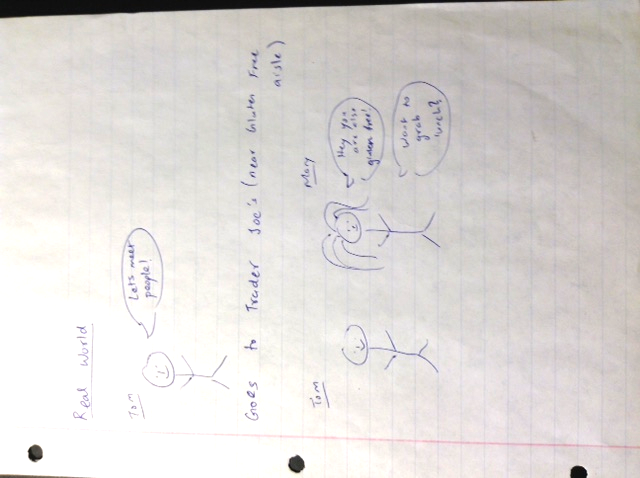 Real World
Tom
Lets meet
people!
Goes to Trader Joe's (near Gluten Free
aisle)
Tom
Mary
Hey you
are also
gluten free!
Want to
grab
lunch?